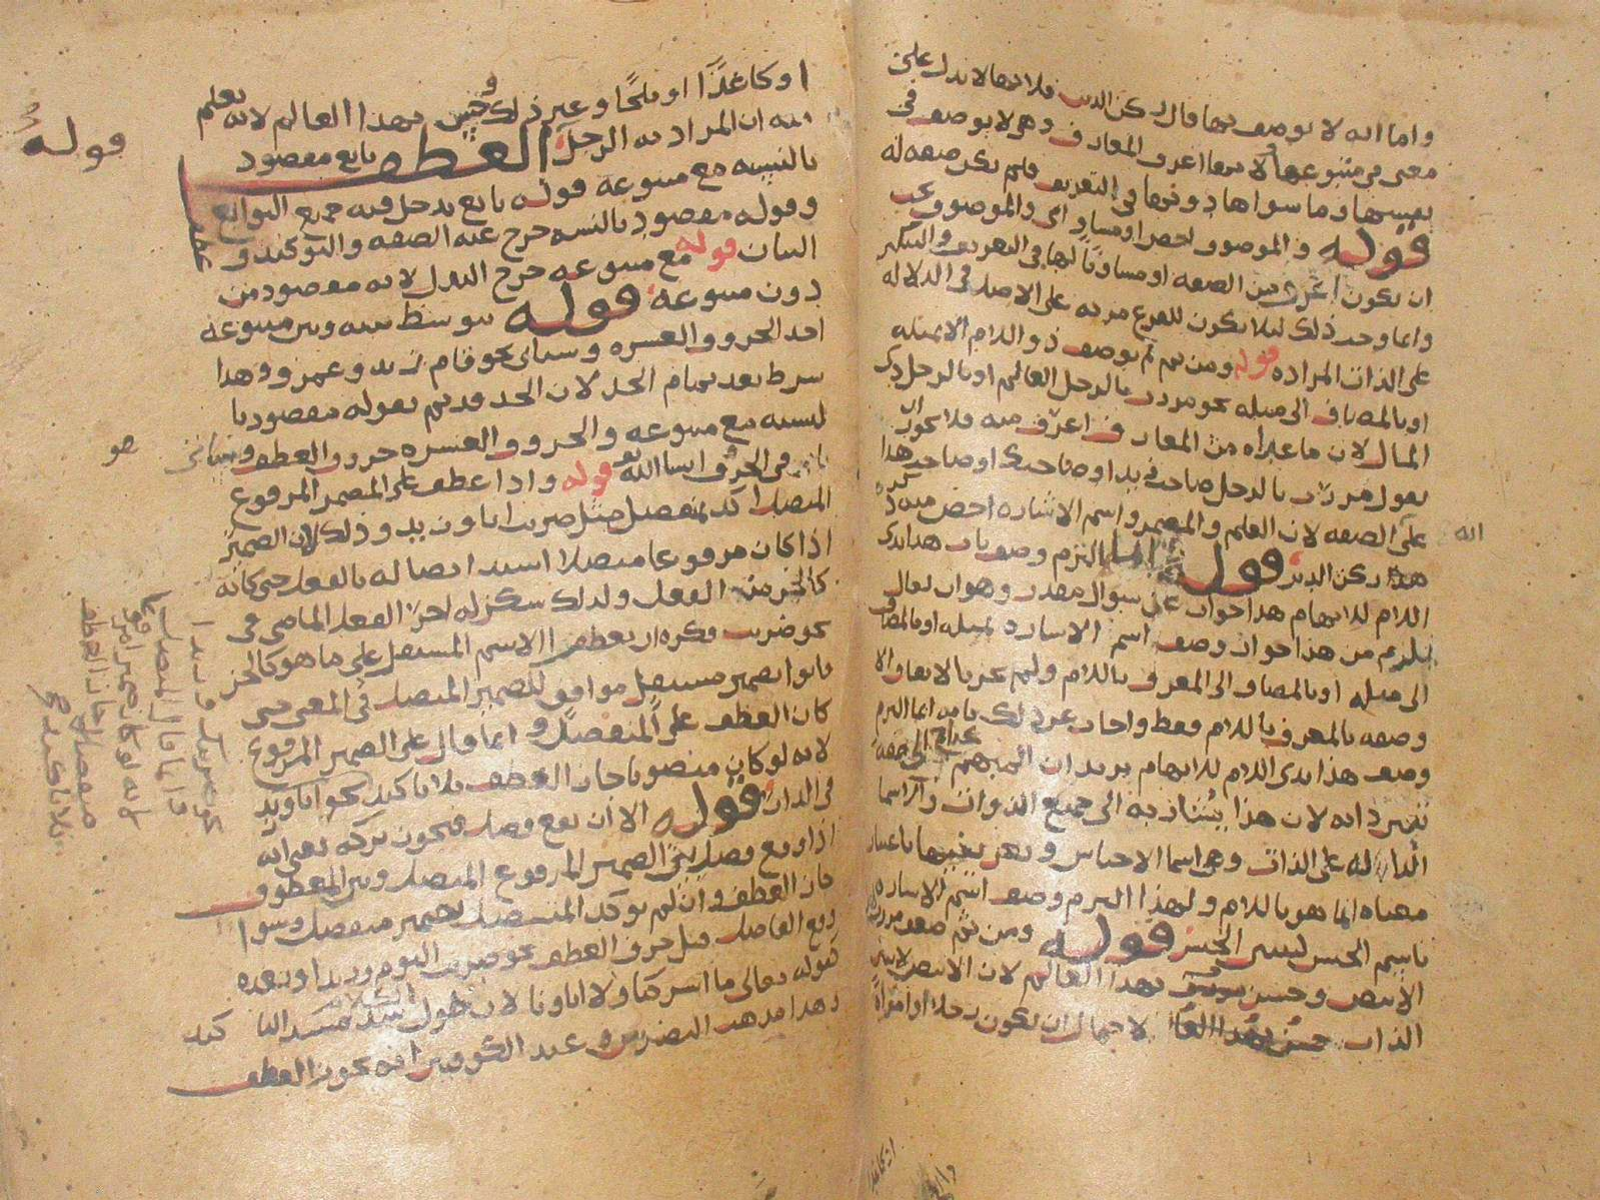 واما انه لا يوصف بها قال ركن الدين فلانها لا تدل على
معنى في متبوعها ولانها اعرف المعارف وهو لا يوصف في
وما سواها دونها في التعريف فلم يكن صفة له
قوله والموصوف اخص او مساو اي والموصوف يجب
ان يكون اعرف من الصفة او مساويا لها في التعريف والتنكير
وانما وجب ذلك ليلا يكون للفرع مزية على الاصل في الدلالة
على الذات المرادة قوله ومن ثم لم يوصف ذو اللام الا بمثله
او بالمضاف الى مثله نحو مررت بالرجل العالم او بالرجل ذي
المال لان ما عداه من المعارف اعرف منه فلا يجوز ان
يقول مررت بالرجل صاحب زيد او صاحبك او صاحب هذا
على الصفة لان العلم والمضمر واسم الاشارة اخص منه ذكره
ركن الدين قوله وانما التزم وصف باب هذا بذي
اللام للابهام هذا جواب على سوال مقدر وهو ان يقال
يلزم من هذا جواز وصف اسم الاشارة بمثله او بالمضاف
الى مثله او بالمضاف الى المعرف باللام ولم يجز بالاتفاق الا
وصفه بالمعرف باللام فقط واجاب عن ذلك بانه انما التزم
وصف هذا بذي اللام للابهام يريد ان المبهم محتاج الى صفة
تفسر ذاته لان هذا يشار به الى جميع الذوات والاسما
الدالة على الذات وهي اسما الاجناس وتعريفها باعتبار
معناه انما هو باللام ولهذا التزم وصف اسم الاشارة
باسم الجنس ليبين الجنس قوله ومن ثم ضعف مررت بهذا
الابيض وحسن بهذا العالم لان الابيض لا يبين
الذات لاحتمال ان يكون رجلا او امراة
الله
او كاغدا او ملحا وغير ذلك وحسن بهذا العالم لانه يعلم
منه ان المراد به الرجل العطف تابع مقصود
بالنسبة مع متبوعه قوله تابع يدخل فيه جميع التوابع
وقوله مقصود بالنسبة خرج عنه الصفة والتوكيد و
عطف
البيان قوله مع متبوعه خرج البدل لانه مقصود من
دون متبوعه قوله يتوسط بينه وبين متبوعه
احد الحروف العشرة وسياتي نحو قام زيد وعمرو وهذا
شرط بعد تمام الحد لان الحد قد تم بقوله مقصود با
لنسبة مع متبوعه والحروف العشرة حروف العطف وسياتي
في الحرف ان شا الله تعالى قوله واذا عطف على المضمر المرفوع
المتصل اكد بمنفصل مثل ضربت انا وزيد وذلك لان الضمير
اذا كان مرفوعا متصلا اشتد اتصاله بالفعل حتى كانه
كالجز من الفعل ولذلك سكن له اخر الفعل الماضي في
نحو ضربت فكره ان يعطف الاسم المستقل على ما هو كالجز
فاتوا بضمير مستقل موافق للضمير المتصل في المعنى حتى
كان العطف على المنفصل وانما قال على الضمير المرفوع
لانه لو كان منصوبا جاز العطف بلا تاكيد نحو اياك وزيد
في الدار قوله الا ان يقع فصل فيجوز تركه يعني انه
اذا وقع فصل بين الضمير المرفوع المتصل وبين المعطوف
جاز العطف وان لم يوكد المتصل بضمير منفصل وسوا
وقع الفاصل قبل حرف العطف نحو ضربت اليوم وزيد او بعده
كقوله تعالى ما اشركنا ولا اباونا لان طول الكلام سد مسد التا كيد
وهذا مذهب البصريين وعند الكوفيين انه يجوز العطف
قوله
هو
نحو ضربتك وزيدا
وانما قال المتصل
لانه لو كان ضميرا مرفوعا
منفصلا جاز العطف
بلا تاكيد